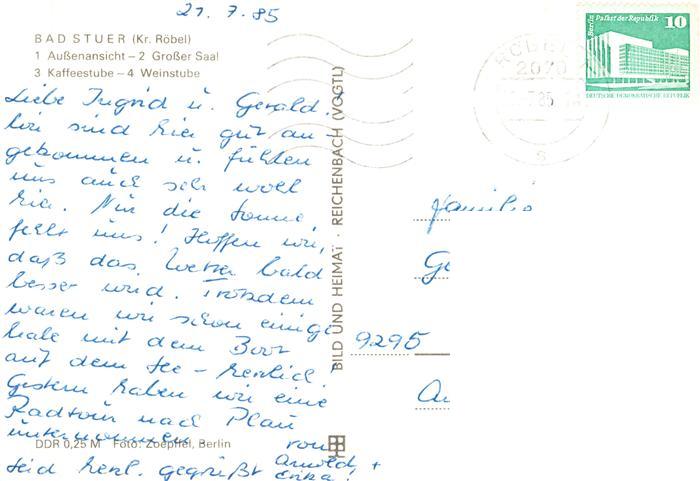 21. 7. 85
BAD STUER (Kr. Röbel)
1 Außenansicht – 2 Großer Saal
3 Kaffeestube – 4 Weinstube
Liebe Ingrid u. Gerald.
Wir sind hier gut an-
gekommen u. fühlen
uns auch sehr wohl
hier. Nur die Sonne
fehlt uns! Hoffen wir,
daß das Wetter bald
besser wird. Trotzdem
waren wir schon einige
male mit dem Boot
auf dem See - herrlich!
Gestern haben wir eine
Radtour nach Plau
unternommen.
DDR 0,25 M Foto: Zoepffel, Berlin
Seid herzl. gegrüßt von
Arnold +
Erika!
BILD UND HEIMAT · REICHENBACH (VOGTL)
Berlin Palast der Republik 10
DEUTSCHE DEMOKRATISCHE REPUBLIK
2070
85
Familie
9295